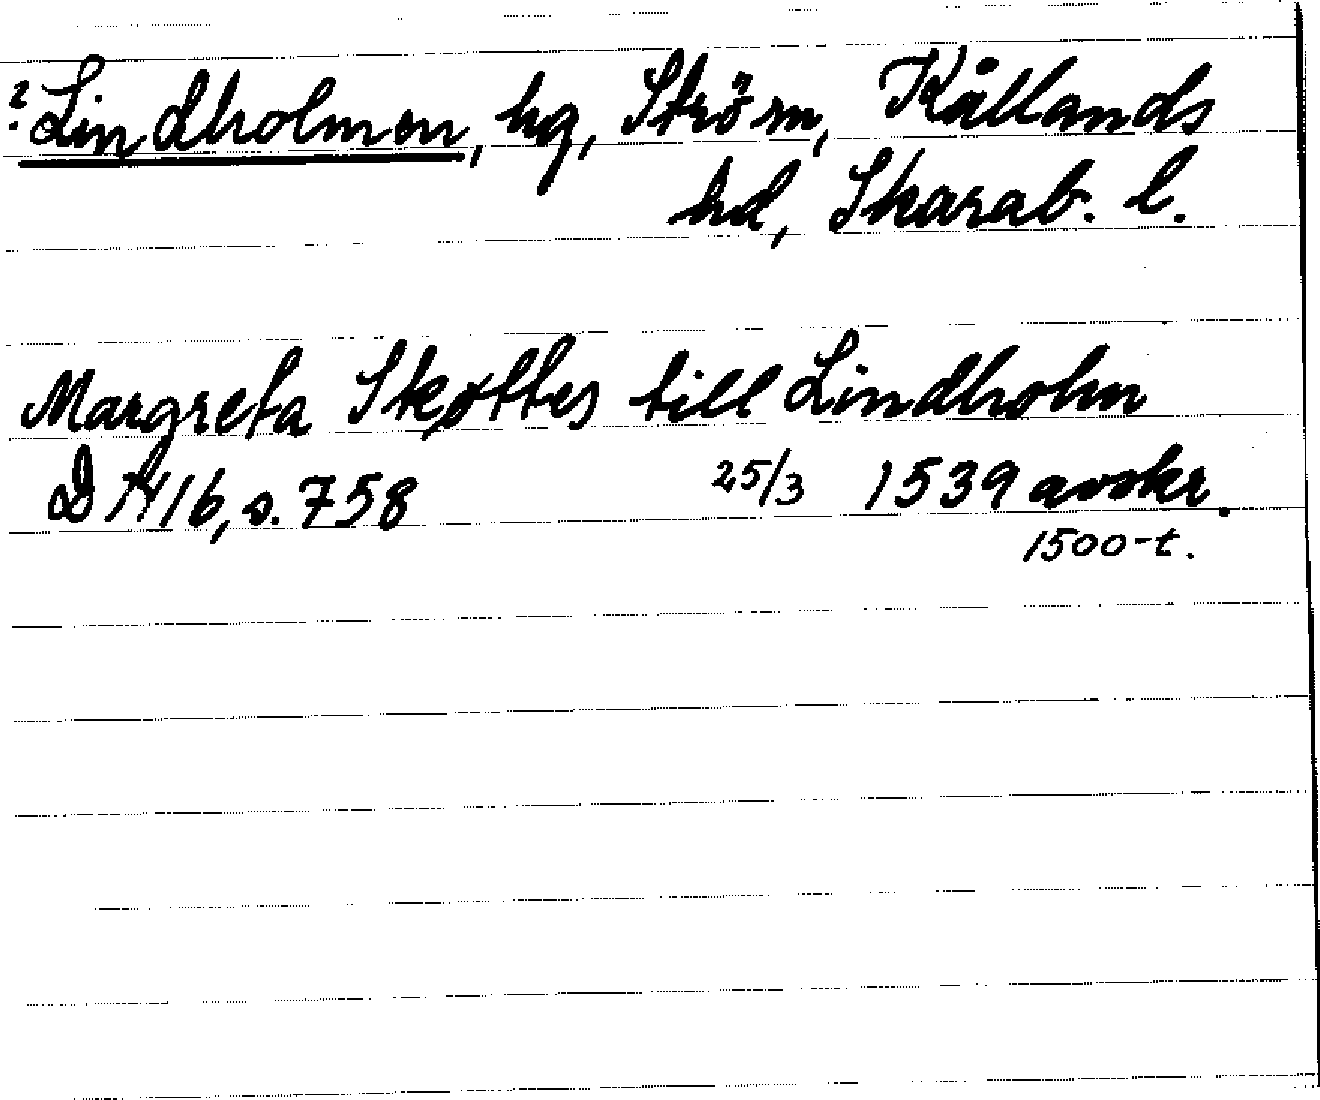 ? Lindholmen, hg, Ström, Kållands
hd, Skarab. l.
Margreta Skøttes till Lindholm
D H 16, s. 758 25/3 1539 avskr.
1500-t.